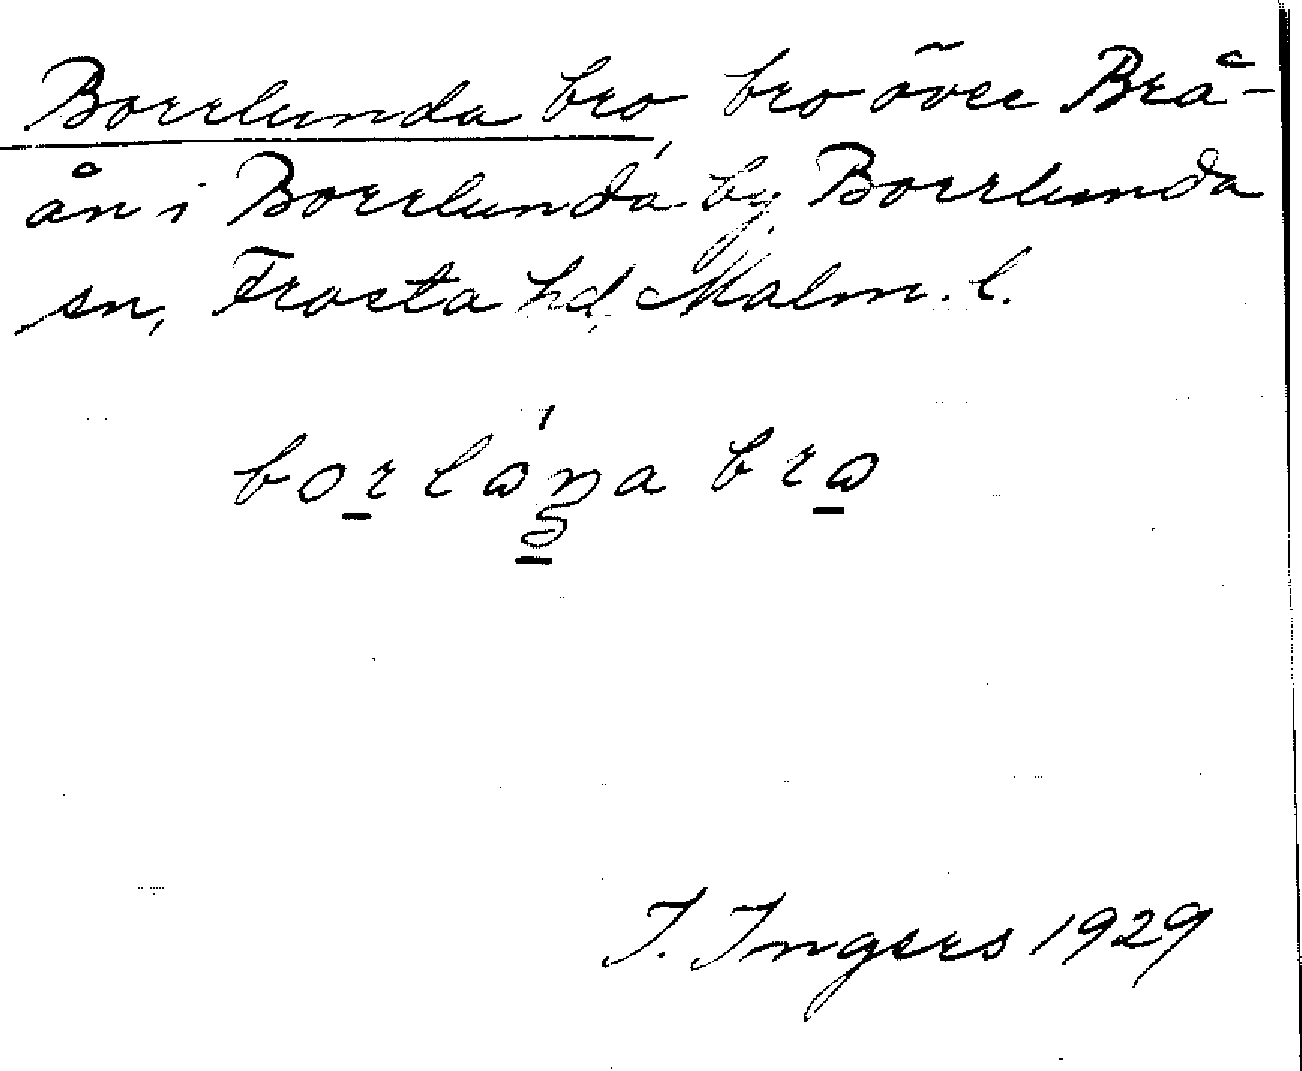 Borrlunda bro, bro över Brå-
ån i Borrlunda by, Borrlunda
sn, Frosta hd, Malm. l.
bra
I. Ingers 1929